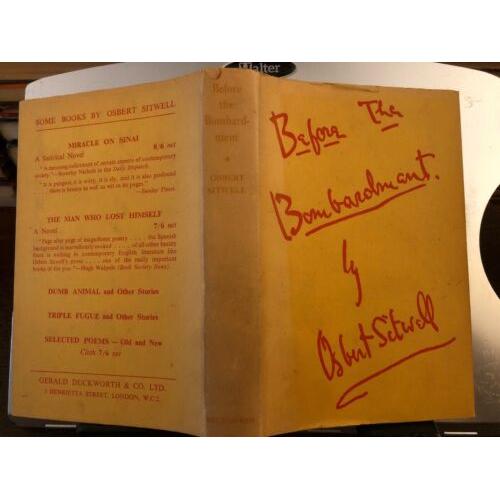 Walter
SOME BOOKS BY OSBERT SITWELL
MIRACLE ON SINAI
A Satirical Novel 8/6 net
"A rather amusing indictment of certain aspects of contemporary
society."—Beverley Nichols in the Daily Dispatch.
"It is pungent, it is witty, it is sly, and it is also profound
there is beauty as well as wit in its pages."
—Sunday Times.
THE MAN WHO LOST HIMSELF
A Novel 7/6 net
"Page after page of magnificent poetry . . . . the Spanish
background is marvellously evoked . . . . of all other beauty
there is nothing in contemporary English literature like
Osbert Sitwell's prose . . . . one of the really important
books of the year."—Hugh Walpole (Book Society News)
DUMB ANIMAL and Other Stories
TRIPLE FUGUE and Other Stories
SELECTED POEMS — Old and New
Cloth 7/6 net
GERALD DUCKWORTH & CO. LTD.
3 HENRIETTA STREET, LONDON, W.C.2.
Before
the
Bombard-
ment
OSBERT
SITWELL
DUCKWORTH
Before The
Bombardment.
by
Osbert Sitwell